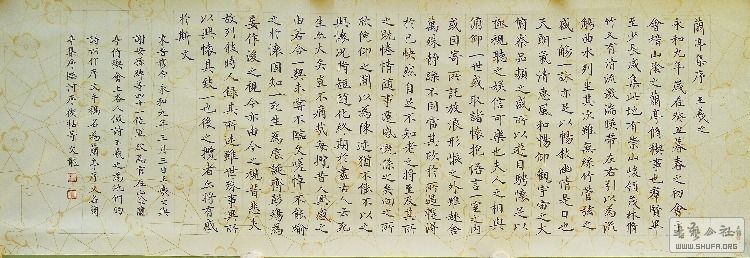 蘭亭集序 王羲之
永和九年歲在癸丑暮春之初會于
會稽山陰之蘭亭修禊事也群賢畢
至少長咸集此地有崇山峻領茂林修
竹又有清流激湍映帶左右引以為流
觴曲水列坐其次雖無絲竹管弦之
盛一觴一詠亦足以暢敘幽情是日也
天朗氣清惠風和暢仰觀宇宙之大
俯察品類之盛所以遊目騁懷足以
極視聽之娛信可樂也夫人之相與
俯仰一世或取諸懷抱悟言一室之內
或因寄所託放浪形骸之外雖趣舍
萬殊靜躁不同當其欣於所遇暫得
於己快然自足不知老之將至及其所
之既惓情隨事遷感慨係之矣向之所
欣俛仰之間以為陳迹猶不能不以之
興懷況修短隨化終期於盡古人云死
生亦大矣豈不痛哉每攬昔人興感之
由若合一契未嘗不臨文嗟悼不能喻
之於懷固知一死生為虛誕齊彭殤為
妄作後之視今亦由今之視昔悲夫
故列敘時人錄其所述雖世殊事異所
以興懷其致一也後之攬者亦將有感
於斯文
東晉穆帝永和九年三月三日王羲之與
謝安孫綽等四十一位
WWW.SHUFA.ORG